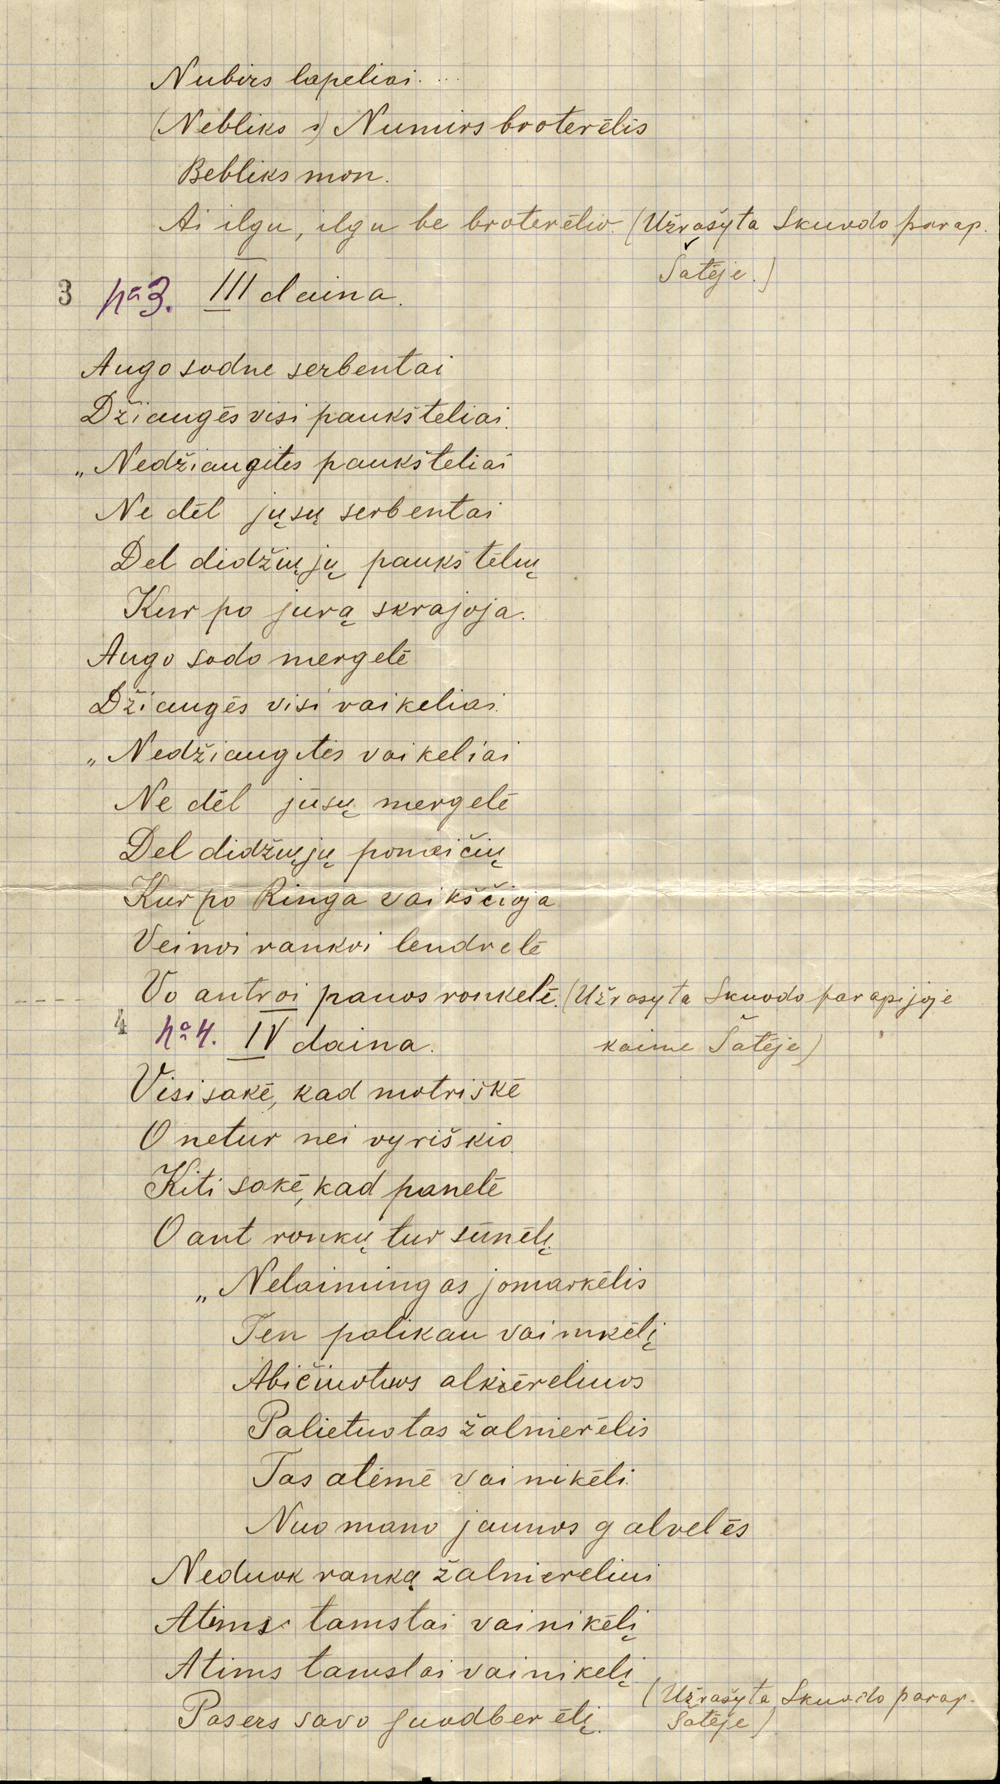 Nubirs lapeliai....
(Nebliks s) Numirs broterėlis
Bebliks mon.
Ai ilgu, ilgu be broterėlio. (Užrašyta Skuodo parap.
Šatėje.)
3 №3. III daina.
Augo sodne serbentai
Džiaugės visi paukšteliai.
„Nedžiaugitės paukšteliai
Ne dėl jųsų serbentai
Del didžiųjų paukštelių
Kur po jurą skrajoja.
Augo sodo mergelė
Džiaugės visi vaikeliai.
„Nedžiaugitės vaikeliai
Ne dėl jūsų mergelė
Del didžiųjų ponaičių
Kur po Ringa vaikščioja
Veinoi rankoi lendrelė
Vo antroi panos ronkelė. (Užrasyta Skuodo parapijoje
kaime Šatėje)
4 №4. IV daina.
Visi sakė, kad motriškė
O netur nei vyriškio.
Kiti sakė, kad panelė
O ant ronkų tur sūnėlį.
„Nelaimingas jomarkėlis
Ten palikau vainikėlį
Abičiuotuos alkierėliuos
Palietuotas žalnierėlis
Tas atėmė vainikėli.
Nuo mano jaunos galvelės
Neduok ranką žalniereliui
Atims tamstai vainikėlį
Atims tamstai vainikelį
Pasers savo juodberėlį. (Užrašyta Skuodo parap.
Šatėje)